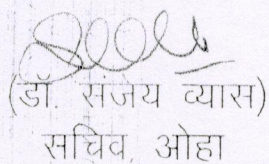 (डॉ. संजय व्यास)
सचिव ओहा